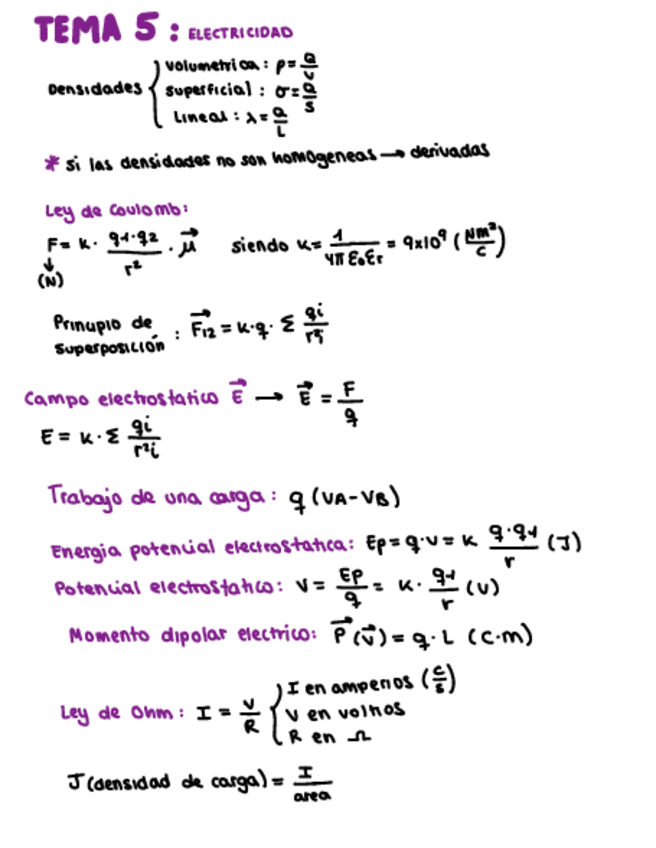 TEMA 5 : ELECTRICIDAD
Densidades { volumetrica : ρ = Q/V
superficial : σ = Q/S
Lineal : λ = Q/L
* si las densidades no son homogeneas → derivadas
Ley de Coulomb:
F = K · q1·q2/r² · μ⃗ siendo K = 1/4π ε₀ εr = 9x10⁹ (Nm²/C)
↓
(N)
Principio de superposición : F⃗12 = K·q· Σ qi/r²
Campo electrostatico E⃗ → E⃗ = F/q
E = K · Σ qi/r²i
Trabajo de una carga : q (VA - VB)
Energia potencial electrostatica: Ep = q·V = K q·q1/r (J)
Potencial electrostatico: V = Ep/q = K · q1/r (V)
Momento dipolar electrico: P⃗ (v⃗) = q · L (C·m)
Ley de Ohm : I = V/R { I en amperios (C/s)
V en voltios
R en Ω
J (densidad de carga) = I/area